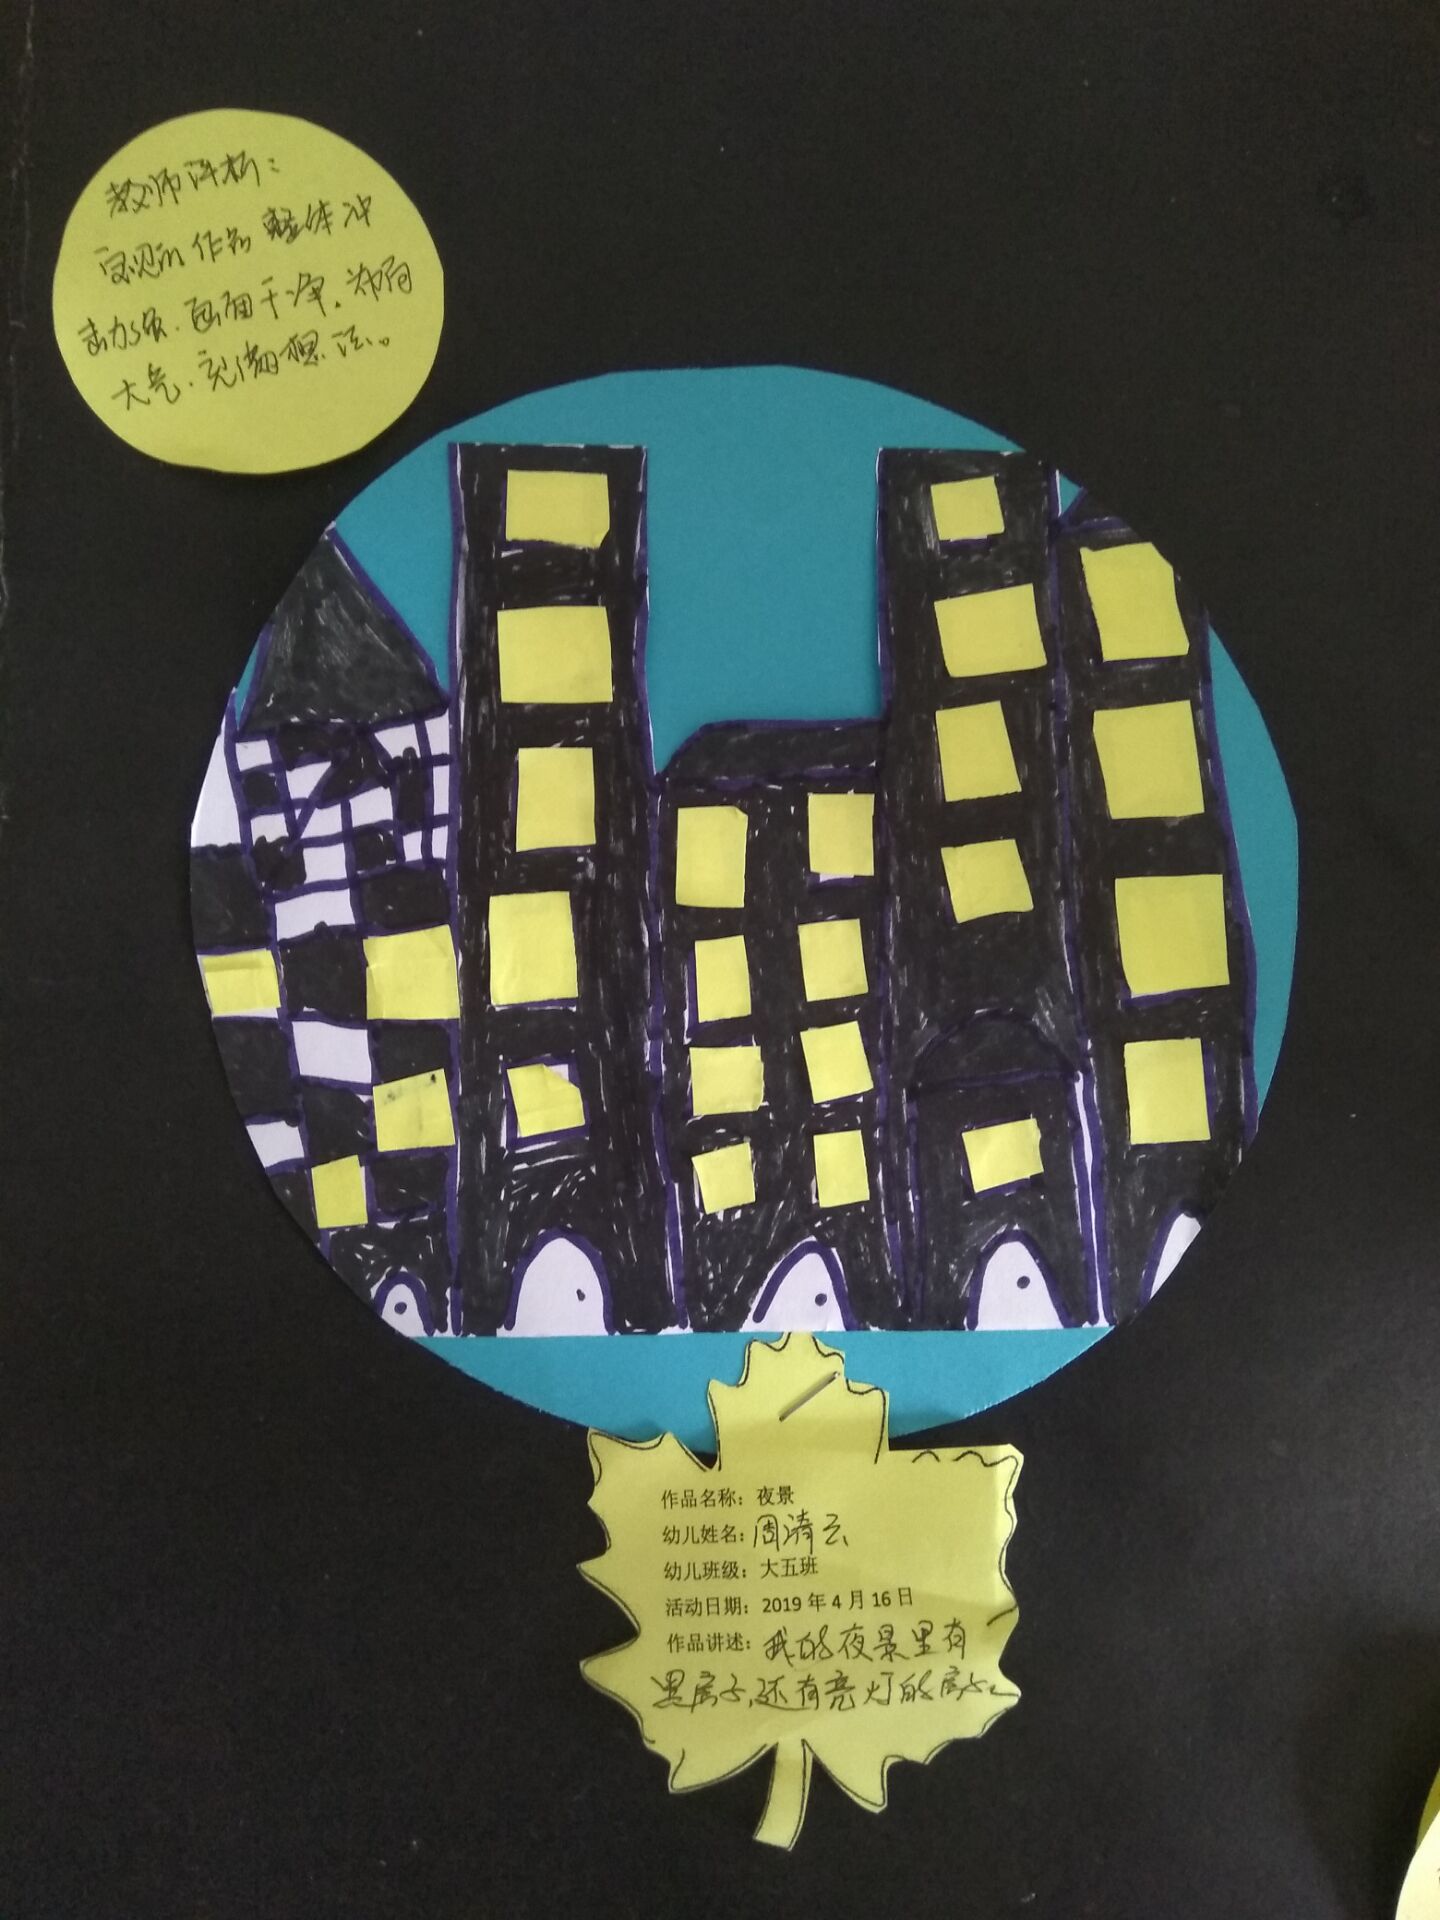 教师评析：
宝贝的作品整体冲
击力强、画面干净，布局
大气、充满想法。
作品名称：夜景
幼儿姓名：周清云
幼儿班级：大五班
活动日期：2019年4月16日
作品讲述：我的夜景里有
黑房子，还有亮灯的房子。